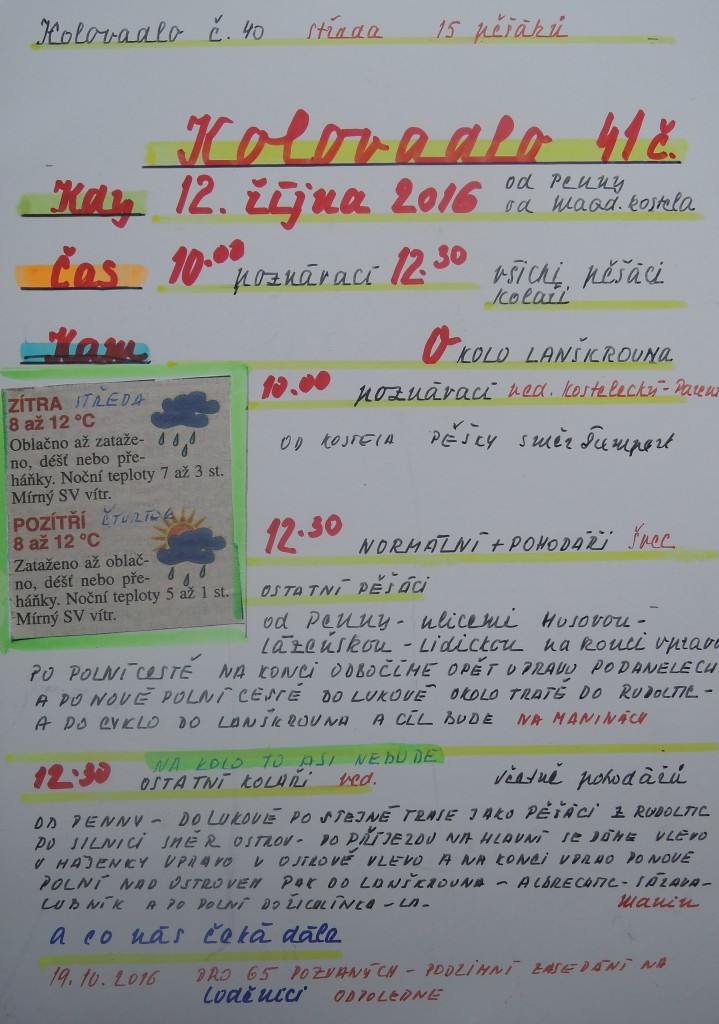 Kolovadlo č. 40 středa 15 pěšáků
Kolovadlo 41 č.
Kdy 12. října 2016 od Penny
od maad. kostela
Čas 10.00 poznávací 12.30 všichi pěšáci
kolaři
Kam O KOLO LANŠKROUNA
10.00 poznávací ved. Kostelecký-
OD KOSTELA PĚŠKY směr
ZÍTRA STŘEDA
8 až 12 °C
Oblačno až zataže-
no, déšť nebo pře-
háňky. Noční teploty 7 až 3 st.
Mírný SV vítr.
POZÍTŘÍ ČTVRTEK
8 až 12 °C
Zataženo až oblač-
no, déšť nebo pře-
háňky. Noční teploty 5 až 1 st.
Mírný SV vítr.
12.30 NORMÁLNÍ + POHODÁŘI Švec
OSTATNÍ PĚŠÁCI
od Penny - ulicemi Husovou -
Lázeňskou - Lidickou na konci vpravo
PO POLNÍ CESTĚ NA KONCI ODBOČÍME OPĚT VPRAVO PODANELECH
A PO NOVÉ POLNÍ CESTĚ DO LUKOVÉ OKOLO TRATĚ DO RUDOLTIC -
A PO CYKLO DO LANŠKROUNA A CÍL BUDE NA MANINÁCH
NA KOLO TO ASI NEBUDE
12.30 OSTATNÍ KOLAŘI ved. včetně pohodářů
OD PENNY - DO LUKOVÉ PO STEJNÉ TRASE JAKO PĚŠÁCI Z RUDOLTIC
PO SILNICI SMĚR OSTROV - PO PŘÍJEZDU NA HLAVNÍ SE DÁME VLEVO
U HÁJENKY VPRAVO V OSTROVĚ VLEVO A NA KONCI VPRAO PO NOVÉ
POLNÍ NAD OSTROVEM PAK DO LANŠKROUNA - ALBRECHTIC - SÁZAVA -
LUBNÍK A PO POLNÍ DO ŽICHLÍNKA - LA - Manin
a co nás čeká dále
19.10. 2016 PRO 65 POZVANÝCH - PODZIMNÍ ZASEDÁNÍ NA
Loděnici ODPOLEDNE